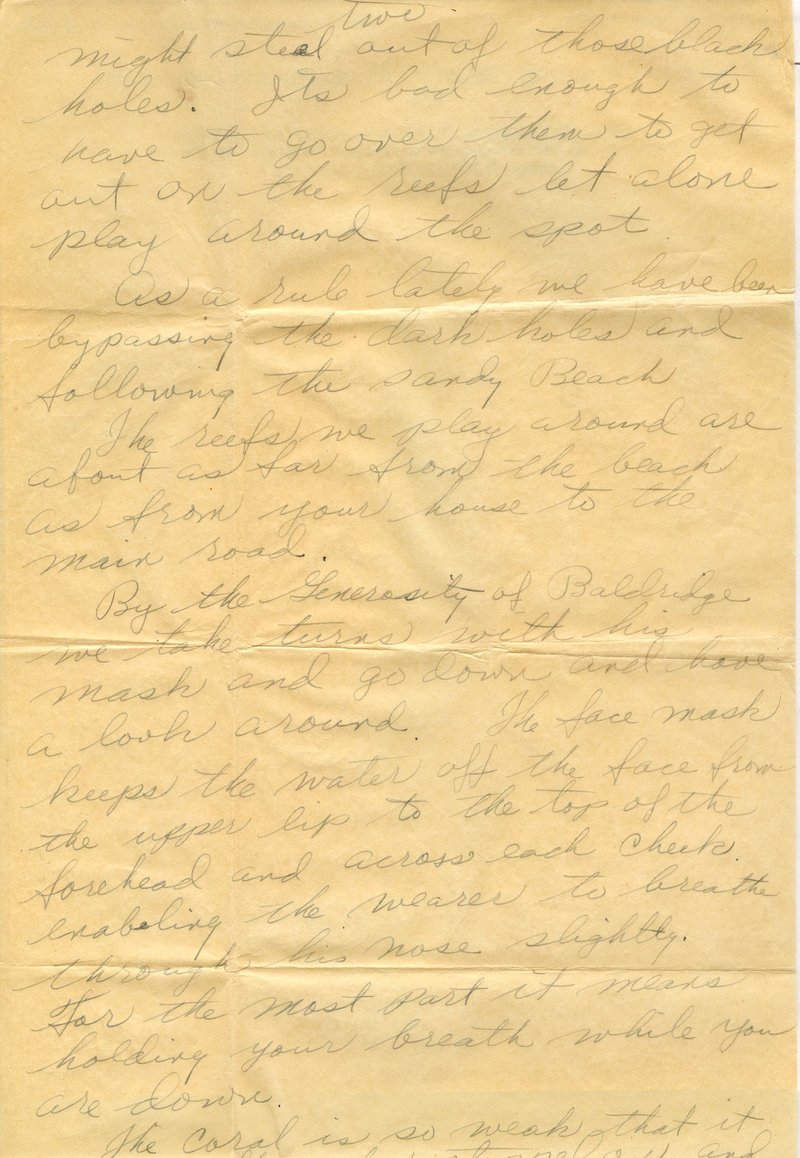 two.
might steal out of those black
holes. Its bad enough to
have to go over them to get
out on the reefs let alone
play around the spot
As a rule lately we have been
bypassing the dark holes and
following the sandy Beach
The reefs we play around are
about as far from the beach
as from your house to the
main road.
By the Generosity of Baldridge
we take turns with his
mask and go down and have
a look around. The face mask
keeps the water off the face from
the upper lip to the top of the
forehead and across each cheek.
enabeling the wearer to breathe
through his nose slightly.
For the most part it means
holding your breath while you
are down.
The coral is so weak that it
and